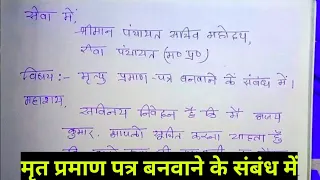 सेवा में,
श्रीमान पंचायत सचिव महोदय,
रीवा पंचायत (म० प्र०)
विषय:- मृत्यु प्रमाण-पत्र बनवाने के संबंध में।
महाशय,
सविनय निवेदन है कि मैं अजय
कुमार. आपको सूचित करना चाहता हूँ
मृत प्रमाण पत्र बनवाने के संबंध में